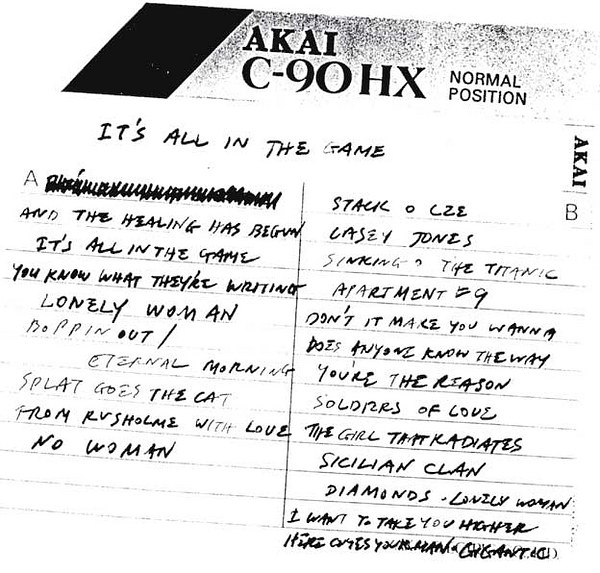 AKAI
C-90HX NORMAL POSITION
AKAI
IT'S ALL IN THE GAME
A
AND THE HEALING HAS BEGUN
IT'S ALL IN THE GAME
YOU KNOW WHAT THEY'RE WRITING
LONELY WOMAN
BOPPIN OUT /
ETERNAL MORNING
SPLAT GOES THE CAT
FROM RUSHOLME WITH LOVE
NO WOMAN
B
STACK O LEE
CASEY JONES
SINKING O THE TITANIC
APARTMENT #9
DON'T IT MAKE YOU WANNA
DOES ANYONE KNOW THE WAY
YOU'RE THE REASON
SOLDIERS OF LOVE
THE GIRL THAT RADIATES
SICILIAN CLAN
DIAMONDS - LONELY WOMAN
I WANT TO TAKE YOU HIGHER
HERE COMES YOUR MAN GIGANTIC